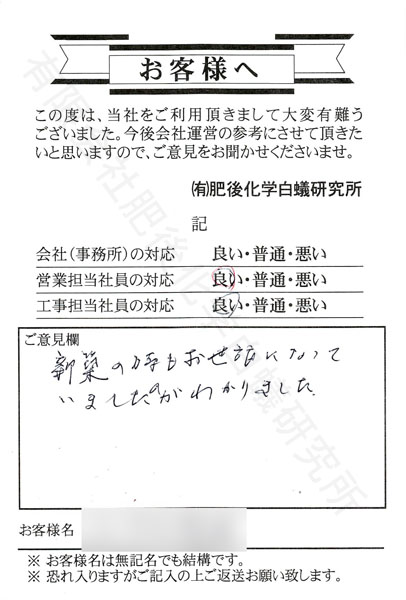 お客様へ
この度は、当社をご利用頂きまして大変有難う
ございました。今後会社運営の参考にさせて頂きた
いと思いますので、ご意見をお聞かせくださいませ。
㈲肥後化学白蟻研究所
記
会社(事務所)の対応 良い・普通・悪い
営業担当社員の対応 良い・普通・悪い
工事担当社員の対応 良い・普通・悪い
ご意見欄
新築の時もお世話になって
いましたのがわかりました
お客様名
※ お客様名は無記名でも結構です。
※ 恐れ入りますがご記入の上ご返送お願い致します。
有限会社肥後化学白蟻研究所